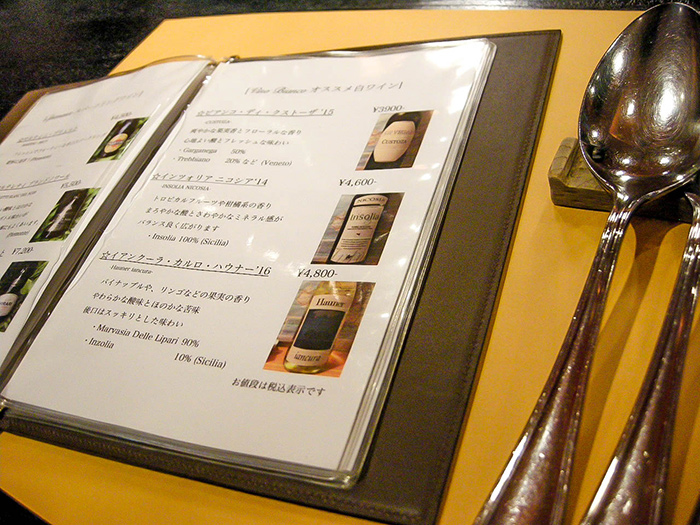 [Vino Bianco オススメ白ワイン]
☆ビアンコ・ディ・クストーザ '15
¥3900-
-CUSTOZA
爽やかな果実香とフローラルな香り
心地よい酸とフレッシュな味わい
・Garganega 50%
・Trebbiano 20% など (Veneto)
CUSTOZA
☆インツォリア ニコシア '14
¥4,600-
-INSOLIA NICOSIA
トロピカルフルーツや柑橘系の香り
まろやかな酸とさわやかなミネラル感が
バランス良く広がります
・Insolia 100% (Sicilia)
NICOSIA
Insolia
☆イアンクーラ・カルロ・ハウナー '16
¥4,800-
Hauner iancura-
パイナップルや、リンゴなどの果実の香り
やわらかな酸味とほのかな苦味
後口はスッキリとした味わい
・Marvasia Delle Lipari 90%
・Inzolia 10% (Sicilia)
Hauner
iancura
お値段は税込表示です
¥5,500-
¥7,200-